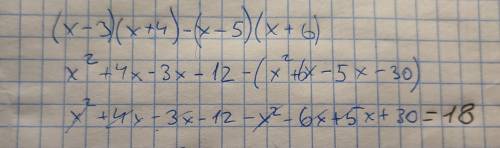 (x-3)(x+4)-(x-5)(x+6)
x²+4x-3x-12-(x²+6x-5x-30)
x²+4x-3x-12-x²-6x+5x+30=18